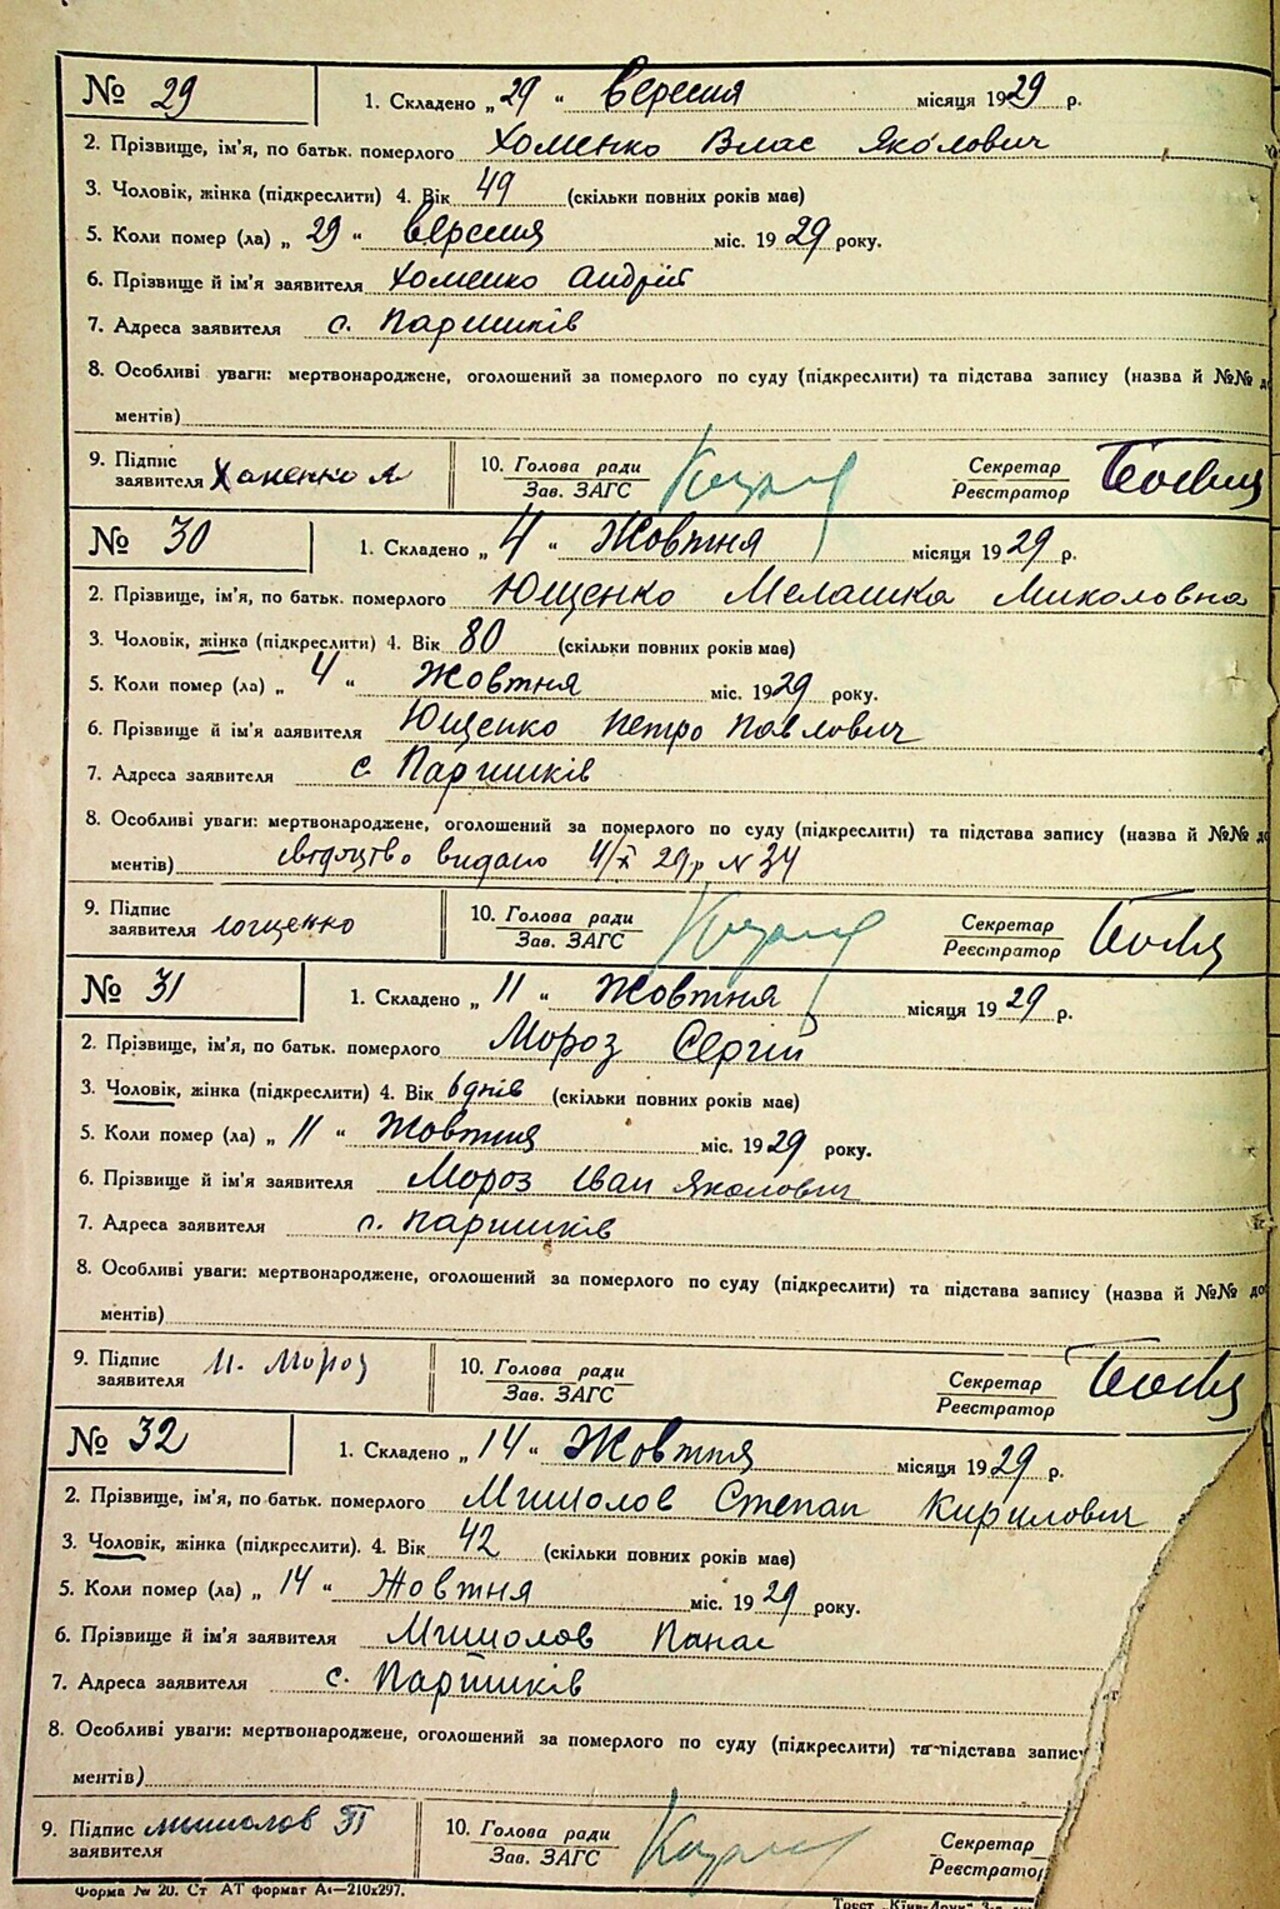 № 29 1. Складено „29“ вересня місяця 1929 р.
2. Прізвище, ім'я, по батьк. померлого Хоменко Влас Яколович
3. Чоловік, жінка (підкреслити) 4. Вік 49 (скільки повних років має)
5. Коли помер (ла) „29“ вересня міс. 1929 року.
6. Прізвище й ім'я заявителя Хоменко Андрій
7. Адреса заявителя с. Паришків
8. Особливі уваги: мертвонароджене, оголошений за померлого по суду (підкреслити) та підстава запису (назва й №№ до
ментів)
9. Підпис заявителя Хаменко А 10. Голова ради Зав. ЗАГС Секретар Реєстратор
№ 30 1. Складено „4“ Жовтня місяця 1929 р.
2. Прізвище, ім'я, по батьк. померлого Ющенко Мелашка Миколовна
3. Чоловік, жінка (підкреслити) 4. Вік 80 (скільки повних років має)
5. Коли помер (ла) „4“ Жовтня міс. 1929 року.
6. Прізвище й ім'я заявителя Ющенко Петро Павлович
7. Адреса заявителя с. Паришків
8. Особливі уваги: мертвонароджене, оголошений за померлого по суду (підкреслити) та підстава запису (назва й №№ до
ментів) свідоцтво видано 4/X 29р N 34
9. Підпис заявителя ющенко 10. Голова ради Зав. ЗАГС Секретар Реєстратор
№ 31 1. Складено „11“ Жовтня місяця 1929 р.
2. Прізвище, ім'я, по батьк. померлого Мороз Сергій
3. Чоловік, жінка (підкреслити) 4. Вік 6 днів (скільки повних років має)
5. Коли помер (ла) „11“ Жовтня міс. 1929 року.
6. Прізвище й ім'я заявителя Мороз Іван Яколович
7. Адреса заявителя с. Паришків
8. Особливі уваги: мертвонароджене, оголошений за померлого по суду (підкреслити) та підстава запису (назва й №№ до
ментів)
9. Підпис заявителя И. Мороз 10. Голова ради Зав. ЗАГС Секретар Реєстратор
№ 32 1. Складено „14“ Жовтня місяця 1929 р.
2. Прізвище, ім'я, по батьк. померлого Мишолов Степан Кирилович
3. Чоловік, жінка (підкреслити). 4. Вік 42 (скільки повних років має)
5. Коли помер (ла) „14“ Жовтня міс. 1929 року.
6. Прізвище й ім'я заявителя Мишолов Панас
7. Адреса заявителя с. Паришків
8. Особливі уваги: мертвонароджене, оголошений за померлого по суду (підкреслити) та підстава запису
ментів)
9. Підпис заявителя мишолов П 10. Голова ради Зав. ЗАГС Секретар Реєстратор
Форма № 20. Ст АТ формат А4—210x297.
Трест „Київ-Друк“